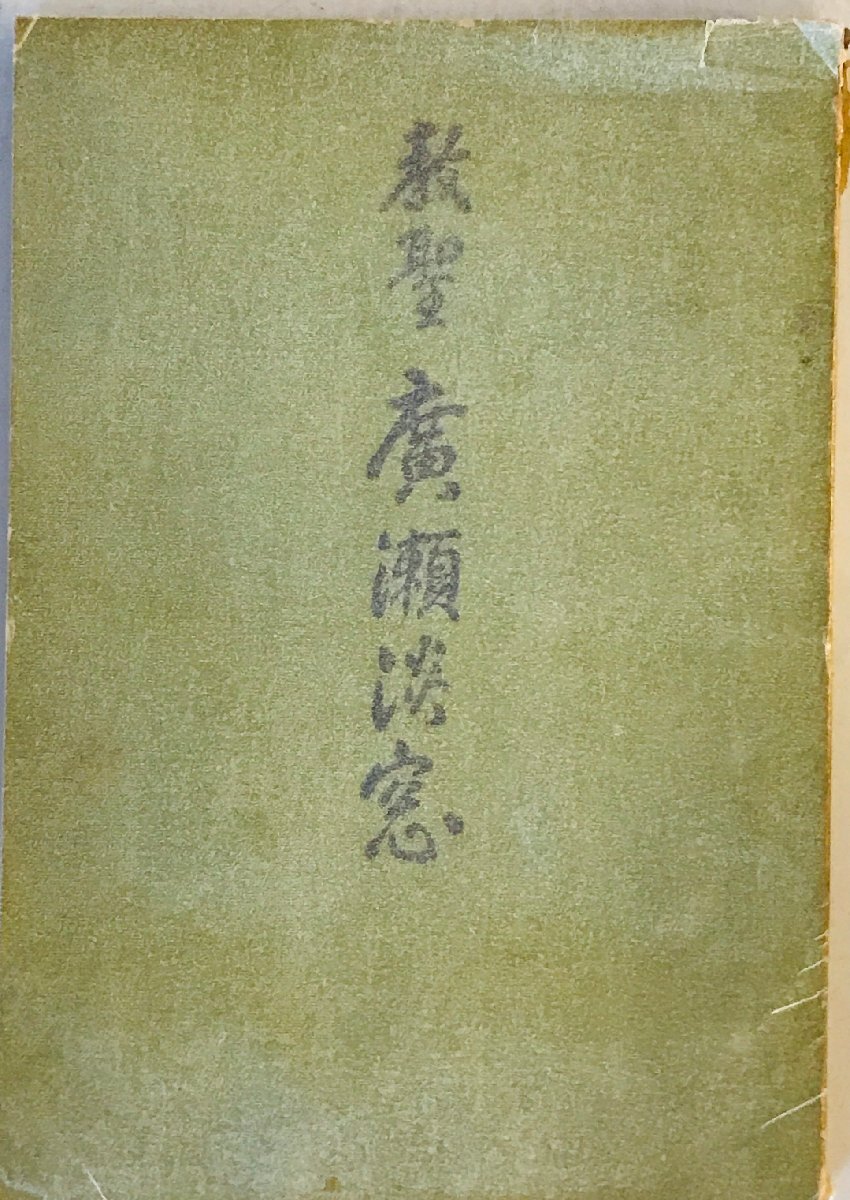 教聖 廣瀬淡窓